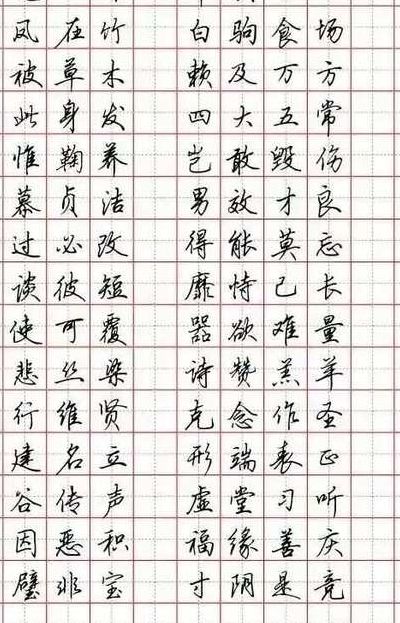 凤在竹 白驹食场
被草木 赖及万方
此身发 四大五常
惟鞠养 岂敢毁伤
慕贞洁 男效才良
过必改 得能莫忘
谈彼短 靡恃己长
使可覆 器欲难量
悲丝染 诗赞羔羊
行维贤 克念作圣
建名立 形端表正
谷传声 虚堂习听
因恶积 福缘善庆
璧非宝 寸阴是竞